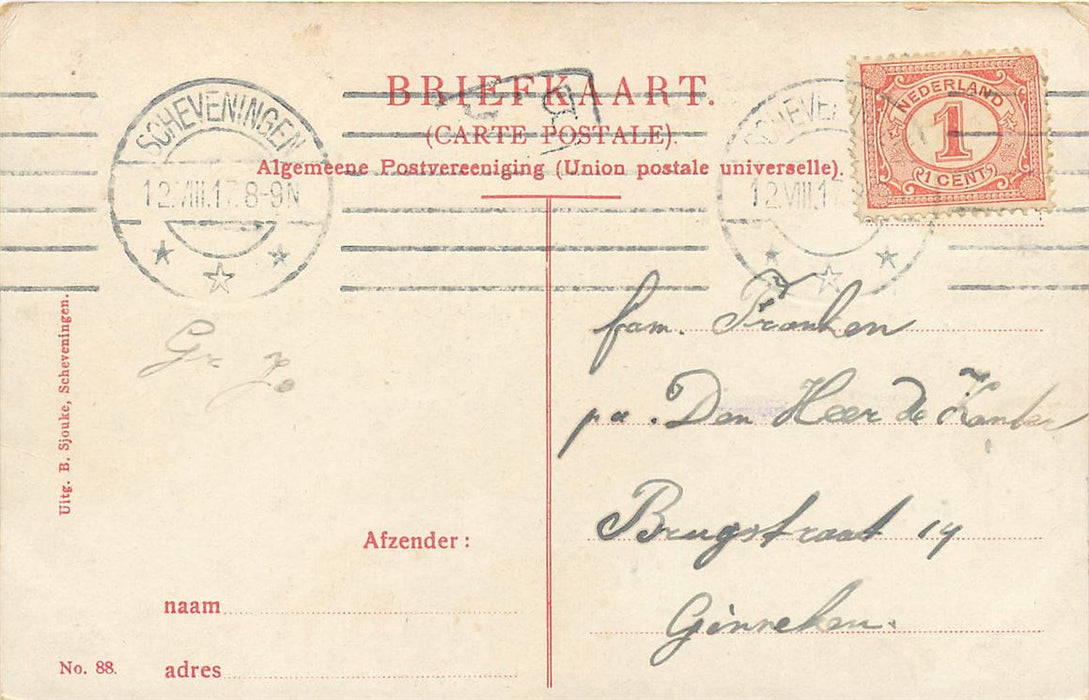 BRIEFKAART.
(CARTE POSTALE).
Algemeene Postvereeniging (Union postale universelle).
SCHEVENINGEN
12.VIII.17. 8-9N
SCHEVE
12.VIII.17.
NEDERLAND
1
1 CENT
fam. Franken
pa. Den Heer de Kanter
Brugstraat 14
Ginneken.
Gr Jo
Afzender:
naam
adres
Uitg. B. Sjouke, Scheveningen.
No. 88.